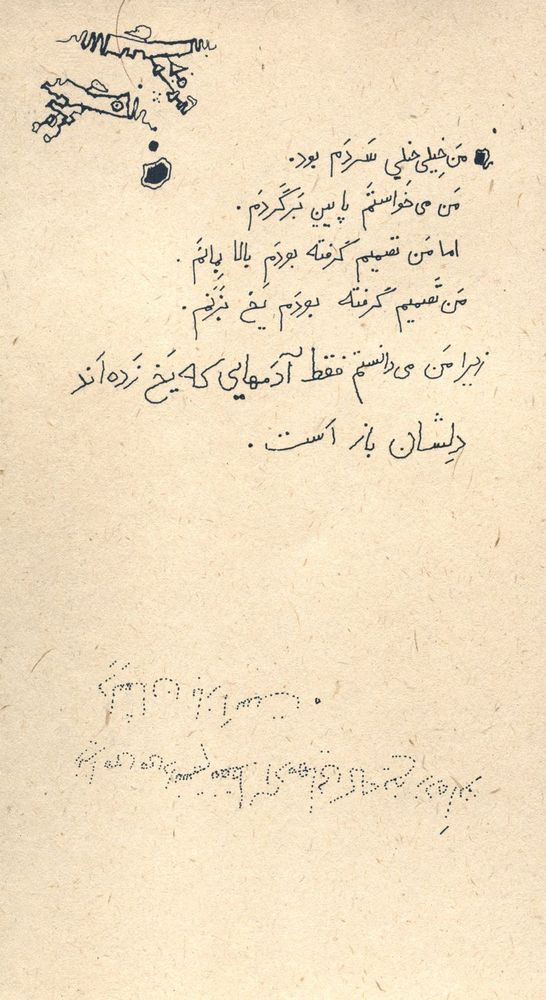 مَن خِیلی خیلی سَردَم بود.
مَن می خواستَم پایین بَرگَردَم.
اما مَن تصمیم گرفته بودَم بالا بِمانَم.
مَن تَصمیم گرفته بودَم یَخ بِزَنَم.
زیرا مَن می دانستم فقط آدَمهایی که یَخ زَده اَند
دِلِشان باز اَست.